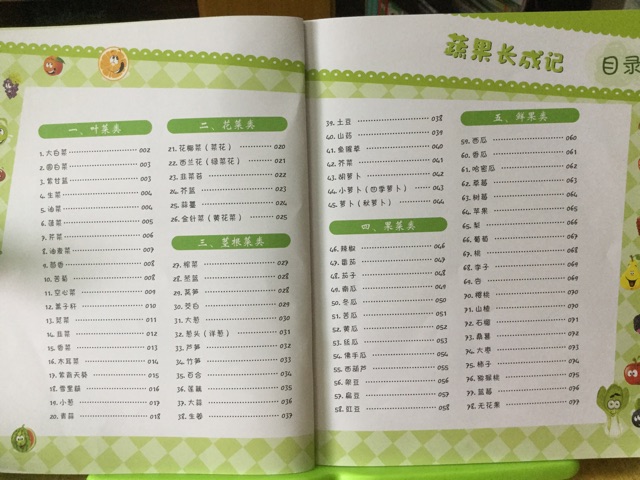 蔬果长成记
目录
一、叶菜类
1.大白菜 002
2.圆白菜 003
3.紫甘蓝 003
4.生菜 004
5.油菜 004
6.菠菜 005
7.芹菜 006
8.油麦菜 007
9.茴香 008
10.苦菊 008
11.空心菜 009
12.茉子秆 010
13.苋菜 011
14.韭菜 012
15.香菜 013
16.木耳菜 014
17.紫背天葵 015
18.雪里蕻 016
19.小葱 017
20.青蒜 018
二、花菜类
21.花椰菜(菜花) 020
22.西兰花(绿菜花) 021
23.韭菜苔 022
24.芥蓝 023
25.蒜薹 024
26.金针菜(黄花菜) 025
三、茎根菜类
27.榨菜 027
28.苤蓝 028
29.莴笋 028
30.茭白 029
31.大葱 030
32.葱头(洋葱) 031
33.芦笋 032
34.竹笋 033
35.百合 034
36.莲藕 035
37.大蒜 036
38.生姜 037
39.土豆 038
40.山药 039
41.鱼腥草 040
42.芥菜 041
43.胡萝卜 042
44.小萝卜(四季萝卜) 043
45.萝卜(秋萝卜) 044
四、果菜类
46.辣椒 046
47.番茄 047
48.茄子 048
49.南瓜 049
50.冬瓜 050
51.苦瓜 051
52.黄瓜 052
53.丝瓜 053
54.佛手瓜 054
55.西葫芦 055
56.豌豆 056
57.扁豆 057
58.豇豆 058
五、鲜果类
59.西瓜 060
60.香瓜 061
61.哈密瓜 062
62.草莓 063
63.树莓 064
64.苹果 065
65.梨 066
66.葡萄 067
67.桃 068
68.李子 069
69.杏 069
70.樱桃 070
71.山楂 070
72.石榴 071
73.桑葚 071
74.大枣 073
75.柿子 074
76.猕猴桃 075
77.蓝莓 076
78.无花果 077